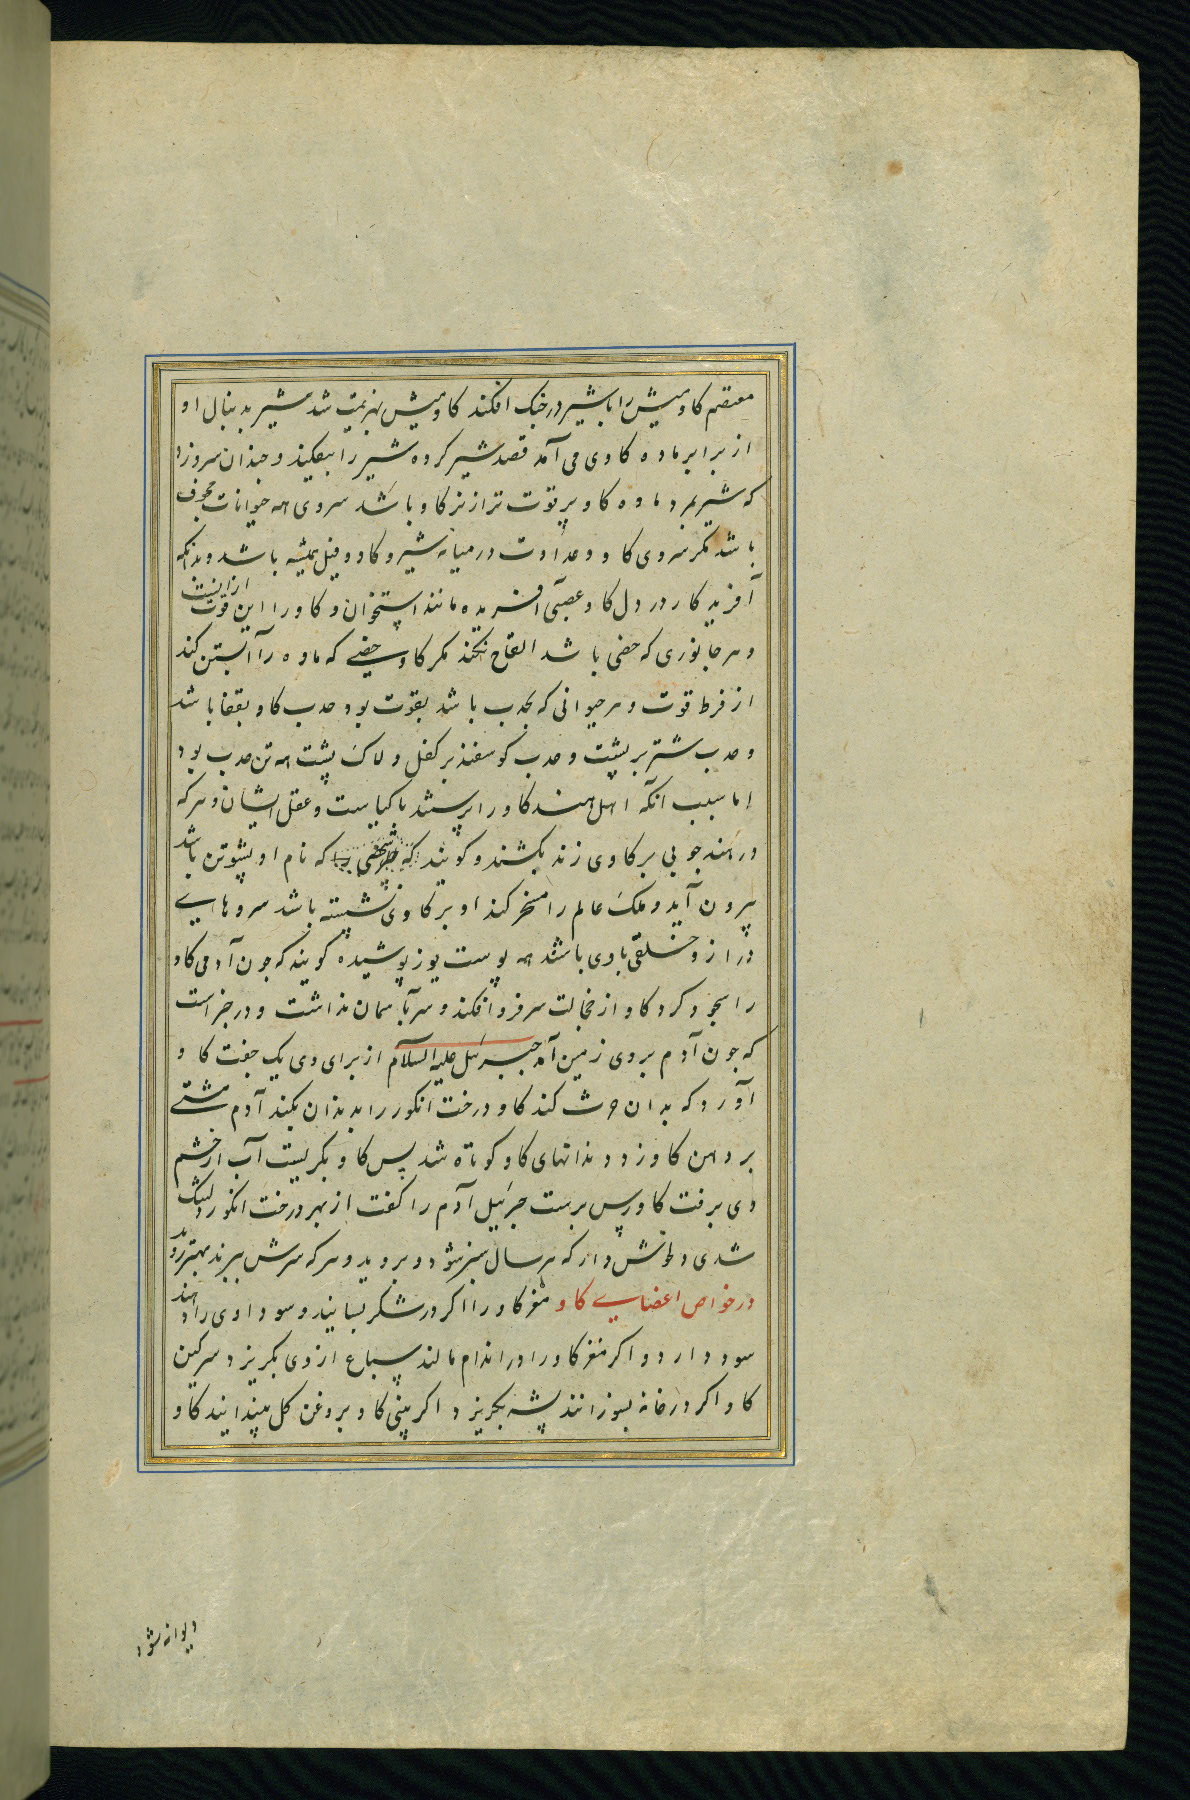 معتصم کاومیش را با شیر در جنک افکند کاومیش بهزیمت شد شیر بدنبال او
از برابر ماده کاوی می آمد قصد شیر کرده شیر را بیفکند و جندان سرو زد
که شیر بمرد ماده کاو پر قوت تر از نر کاو باشد سروی همه حیوانات مجوف
باشد مکر سروی کاو و عداوت در میانه شیر و کاو و فیل همیشه باشد و بدانکه
آفریدکار در دل کاو عصبی آفریده مانند استخوان و کاو را این قوت از آنست
و هر جانوری که خصی باشد القاح نکند مکر کاو خصی که ماده را آبستن کند
از فرط قوت و هر حیوانی که بحدب باشد بقوت بود حدب کاو بقفا باشد
و حدب شتر بر پشت و حدب کوسفند بر کفل و لاک پشت همه تن حدب بود
اما سبب آنکه اهل هند کاو را پرستند با کیاست و عقل ایشان و هر که
در هند جوبی بر کاوی زند بکشند و کویند که شخصی که نام او پشوتن باشد
بیرون آید و ملک عالم را مسخر کند او بر کاوی نشسته باشد سروهایی
دراز و خلقی با وی باشند همه پوست یوز پوشیده کویند که جون آدمی کاو
را سجود کرد کاو از خجالت سر فرو افکند و سر بآسمان نداشت و در خبر است
که جون آدم بروی زمین آمد جبرئیل علیه السلام از برای وی یک جفت کاو
آورد که بدان حرث کند کاو درخت انکور را بدندان بکند آدم مشتی
بر دهن کاو زد دندانهای کاو کوتاه شد پس کاو بکریست آب از جشم
وی برفت کاورس برست جبرئیل آدم را کفت از بهر درخت انکور دلتنک
شدی دل خوش دار که هر سال سبز شود و بروید و هر که سرش ببرند بهتر روید
در خواص اعضایی کاو مغز کاو را اکر در شکر بسایند و سوداوی را دهند
سود دارد و اکر مغز کاو را در اندام مالند سباع از وی بکریزد سرکین
کاو اکر در خانه بسوزانند پشه بکریزد اکر بینی کاو بروغن کل بیندایند کاو
دیوانه شود